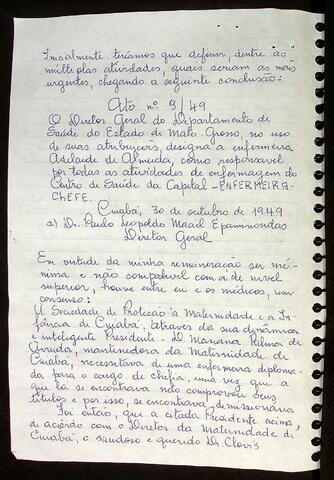 Inicialmente teríamos que definir, dentre as
múltiplas atividades, quais seriam as mais
urgentes, chegando a seguinte conclusão:
Ato nº 9/49
O Diretor Geral do Departamento de
Saúde do Estado de Mato-Grosso, no uso
de suas atribuições, designa a enfermeira
Adelaide de Almeida, como responsável
por todas as atividades de enfermagem do
Centro de Saúde da Capital - ENFERMEIRA-
CHEFE.
Cuiabá, 30 de outubro de 1949
a) Dr. Paulo Leopoldo Maciel Epaminondas
Diretor Geral
Em virtude da minha remuneração ser mí-
nima e não compatível com a de nível
superior, houve entre eu e os médicos, um
consenso:
A Sociedade de Proteção à Maternidade e a In-
fância de Cuiabá, através da sua dinâmica
e inteligente Presidente - D. Mariana Palma de
Arruda, mantenedora da Maternidade de
Cuiabá, necessitava de uma enfermeira diploma-
da para o cargo de chefia, uma vez que a
que lá se encontrava não comprovou seus
títulos e por isso, se encontrava demissionária
Foi então, que a citada Presidente acima,
de acôrdo com o Diretor da Maternidade de
Cuiabá, o saudoso e querido Dr. Clovis